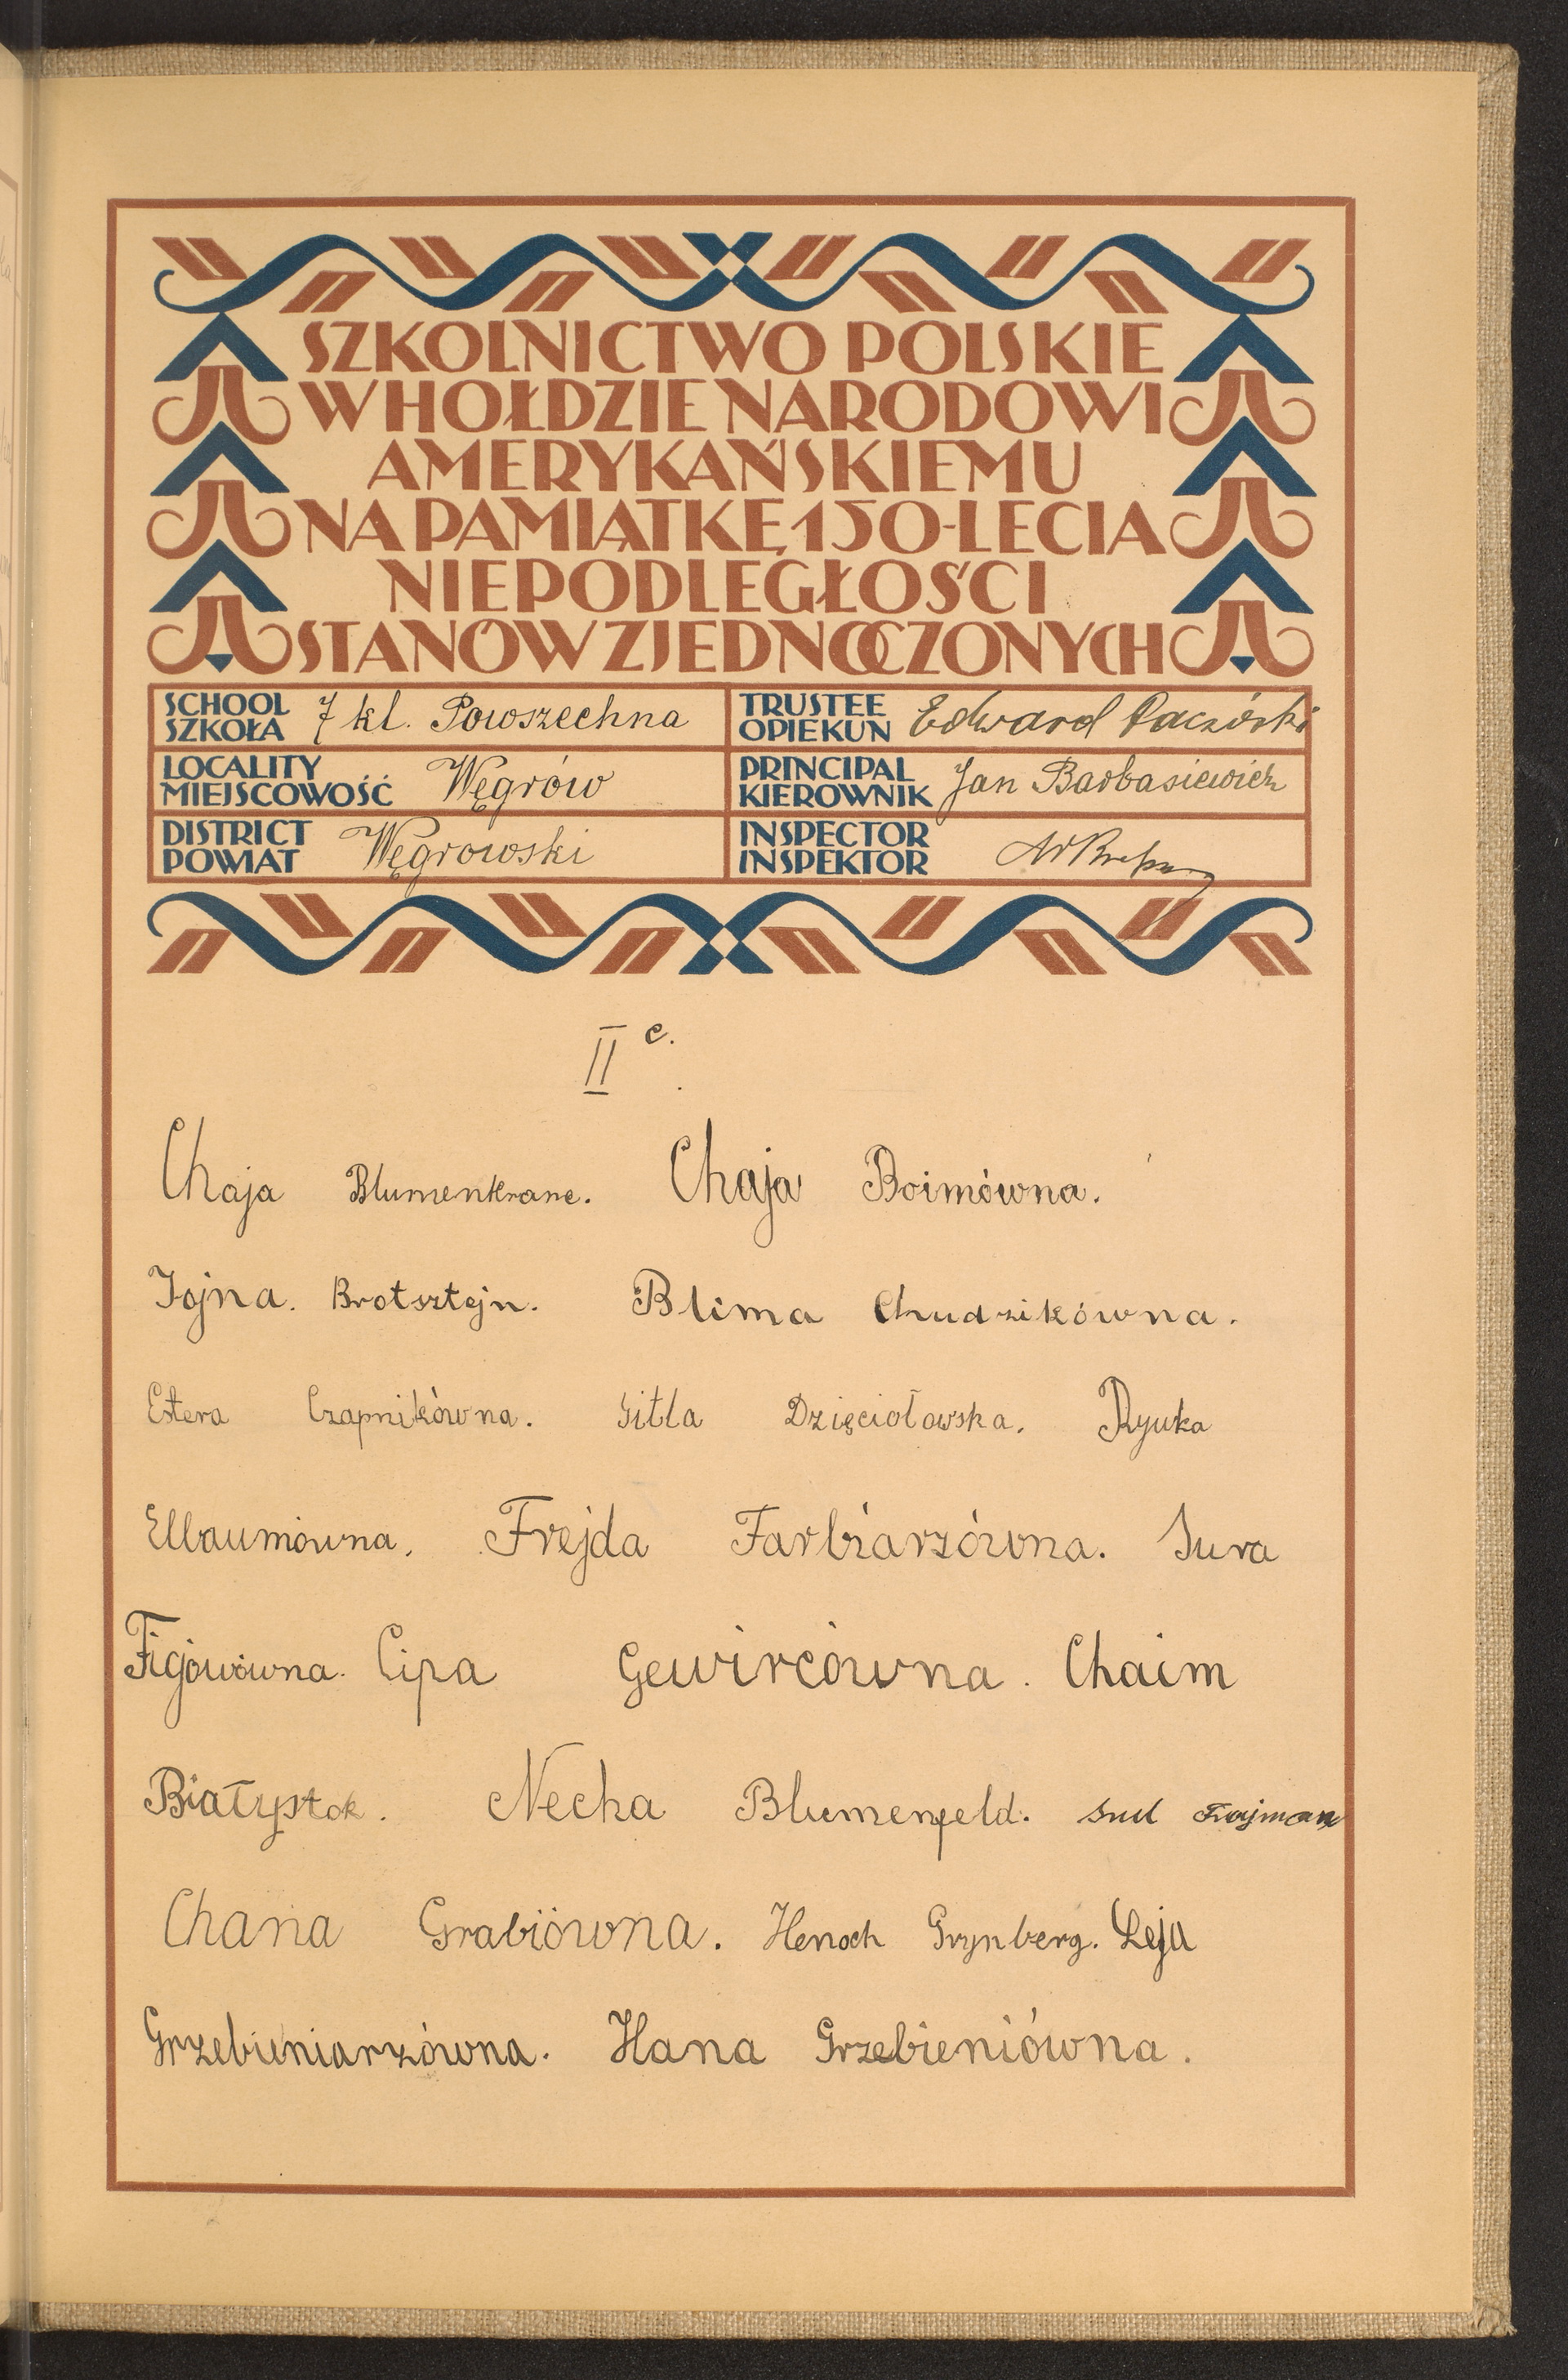 SZKOLNICTWO POLSKIE
W HOŁDZIE NARODOWI
AMERYKAŃSKIEMU
NA PAMIĄTKĘ 150-LECIA
NIEPODLEGŁOŚCI
STANÓW ZJEDNOCZONYCH
SCHOOL
SZKOŁA 7 kl. Powszechna
TRUSTEE
OPIEKUN Edward Paczóski
LOCALITY
MIEJSCOWOŚĆ Węgrów
PRINCIPAL
KIEROWNIK Jan Barbasiewicz
DISTRICT
POWIAT Węgrowski
INSPECTOR
INSPEKTOR
II c.
Chaja Blumenkranc. Chaja Boimówna.
Jojna. Brotsztejn. Blima Chudzikówna.
Estera Czapnikówna. Gitla Dzięciołowska. Ryuka
Elbaumówna. Frejda Farbiarzówna. Sura
Figowówna. Cipa Gewircówna. Chaim
Białystok. Necha Blumenfeld. Srul Frajman
Chana Grabiówna. Henoch Grynberg. Leja
Grzebieniarzówna. Hana Grzebieniówna.